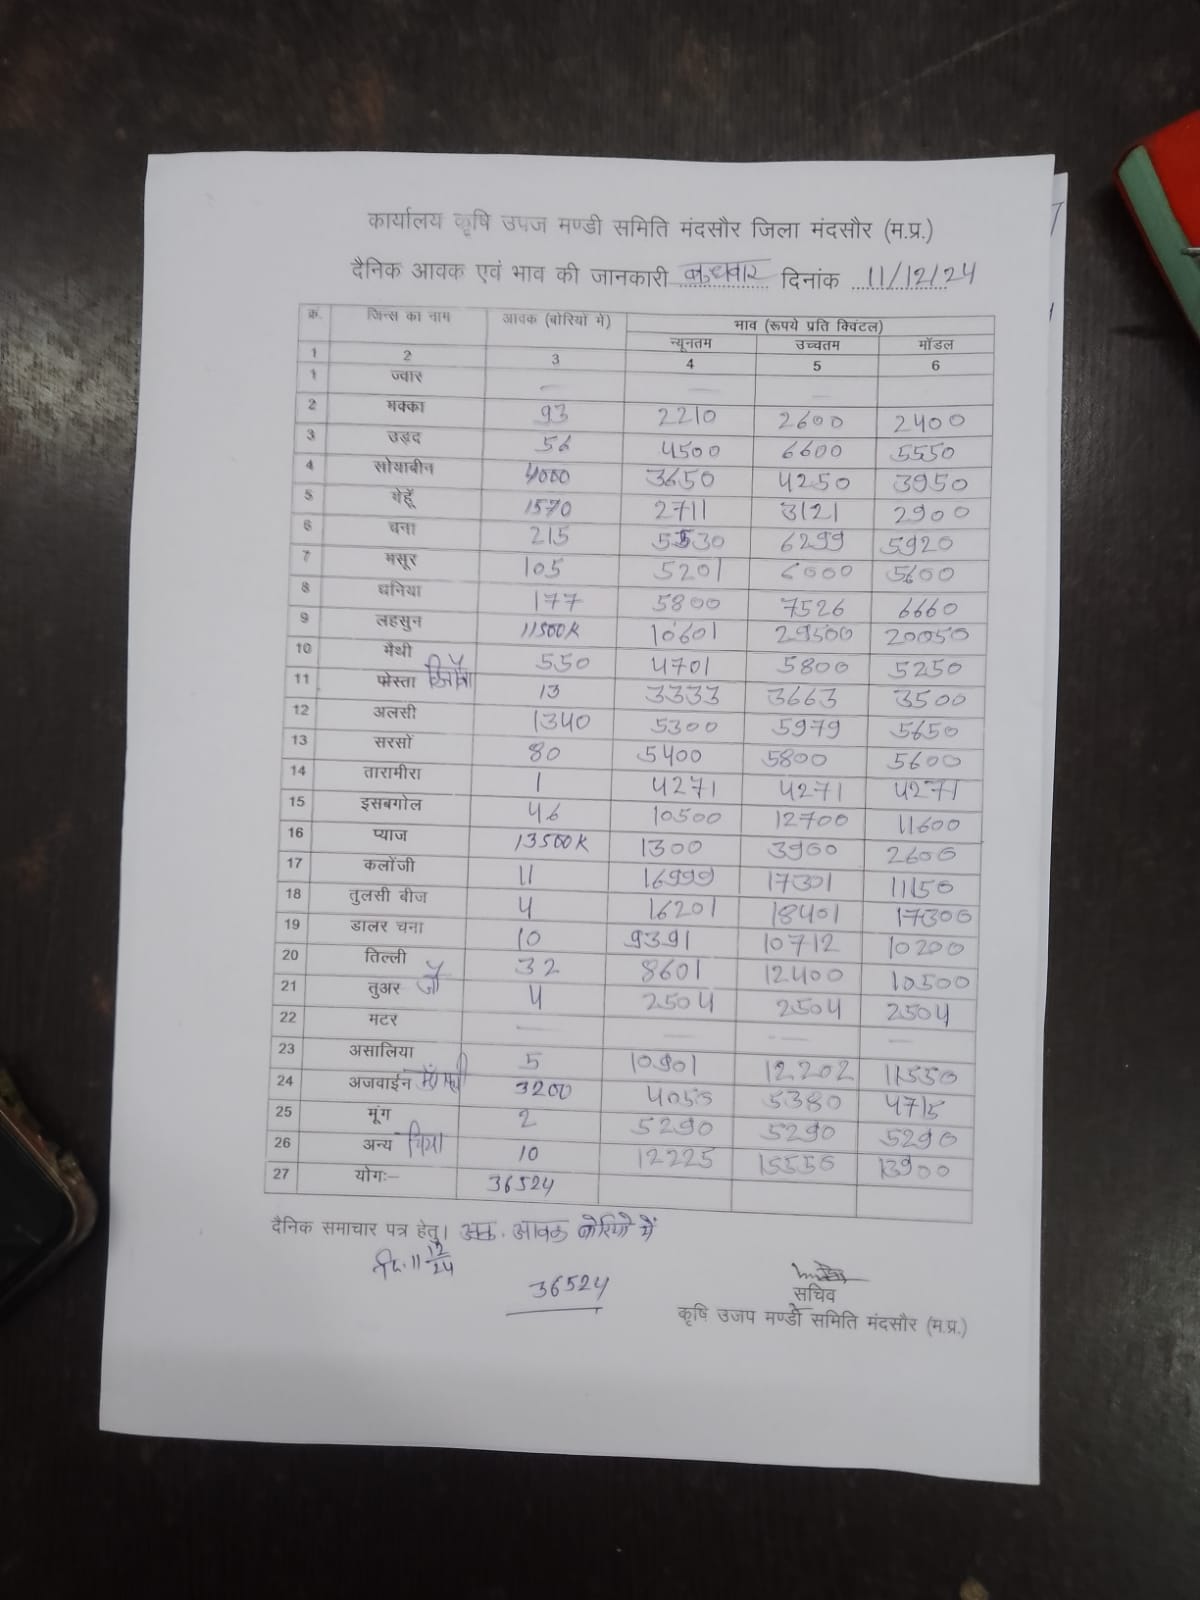 कार्यालय कृषि उपज मण्डी समिति मंदसौर जिला मंदसौर (म.प्र.)
दैनिक आवक एवं भाव की जानकारी बुधवार दिनांक 11/12/24
क्र. जिन्स का नाम आवक (बोरियों में) भाव (रूपये प्रति क्विंटल)
न्यूनतम उच्चतम मॉडल
1 2 3 4 5 6
1 ज्वार — — — —
2 मक्का 93 2210 2600 2400
3 उड़द 56 4500 6600 5550
4 सोयाबीन 4000 3650 4250 3950
5 गेहूँ 1570 2711 3121 2900
6 चना 215 5530 6299 5920
7 मसूर 105 5201 6000 5600
8 धनिया 177 5800 7526 6660
9 लहसुन 11500K 10601 29500 20050
10 मैथी 550 4701 5800 5250
11 पोस्ता 13 3333 3663 3500
12 अलसी 1340 5300 5979 5650
13 सरसों 80 5400 5800 5600
14 तारामीरा 1 4271 4271 4271
15 इसबगोल 46 10500 12700 11600
16 प्याज 13500K 1300 3900 2600
17 कलोंजी 11 16999 17301 11150
18 तुलसी बीज 4 16201 18401 17300
19 डालर चना 10 9391 10712 10200
20 तिल्ली 32 8601 12400 10500
21 तुअर जौ 4 2504 2504 2504
22 मटर — — — —
23 असालिया 5 10901 12202 11550
24 अजवाईन 3200 4055 5380 4715
25 मूंग 2 5290 5290 5290
26 अन्य चिया 10 12225 15550 13900
27 योगः– 36524
दैनिक समाचार पत्र हेतु। आवक बोरियो में
दि. 11 12/24
36524
सचिव
कृषि उजप मण्डी समिति मंदसौर (म.प्र.)